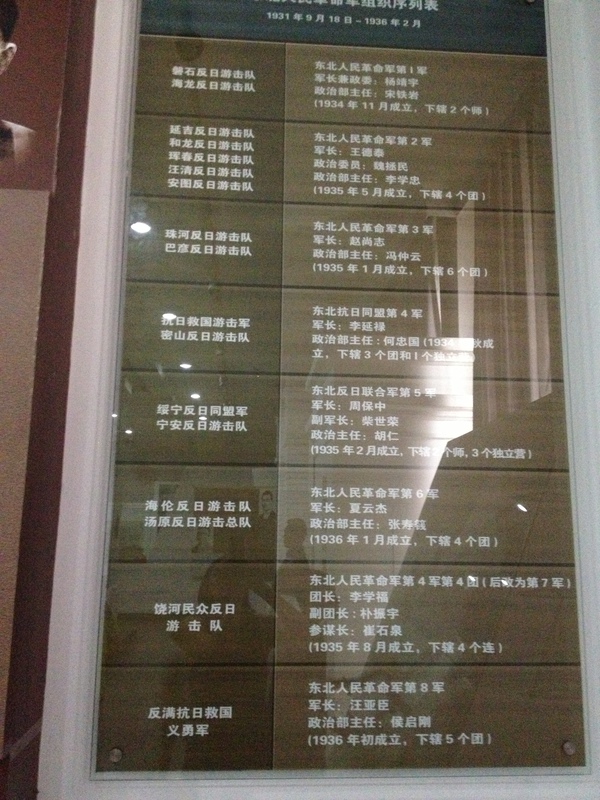 北人民革命军组织序列表
1931年9月18日－1936年2月
磐石反日游击队
海龙反日游击队
东北人民革命军第1军
军长兼政委：杨靖宇
政治部主任：宋铁岩
(1934年11月成立，下辖2个师)
延吉反日游击队
和龙反日游击队
珲春反日游击队
汪清反日游击队
安图反日游击队
东北人民革命军第2军
军长：王德泰
政治委员：魏拯民
政治部主任：李学忠
(1935年5月成立，下辖4个团)
珠河反日游击队
巴彦反日游击队
东北人民革命军第3军
军长：赵尚志
政治部主任：冯仲云
(1935年1月成立，下辖6个团)
抗日救国游击军
密山反日游击队
东北抗日同盟第4军
军长：李延禄
政治部主任：何忠国(1934 秋成
立，下辖3个团和1个独立
绥宁反日同盟军
宁安反日游击队
东北反日联合军第5军
军长：周保中
副军长：柴世荣
政治主任：胡仁
(1935年2月成立，下辖 个师，3个独立营)
海伦反日游击队
汤原反日游击总队
东北人民革命军第6军
军长：夏云杰
政治部主任：张寿篯
(1936年1月成立，下辖4个团)
饶河民众反日
游击队
东北人民革命军第4军第4团(后改为第7军)
团长：李学福
副团长：朴振宇
参谋长：崔石泉
(1935年8月成立，下辖4个连)
反满抗日救国
义勇军
东北人民革命军第8军
军长：汪亚臣
政治部主任：侯启刚
(1936年初成立，下辖5个团)